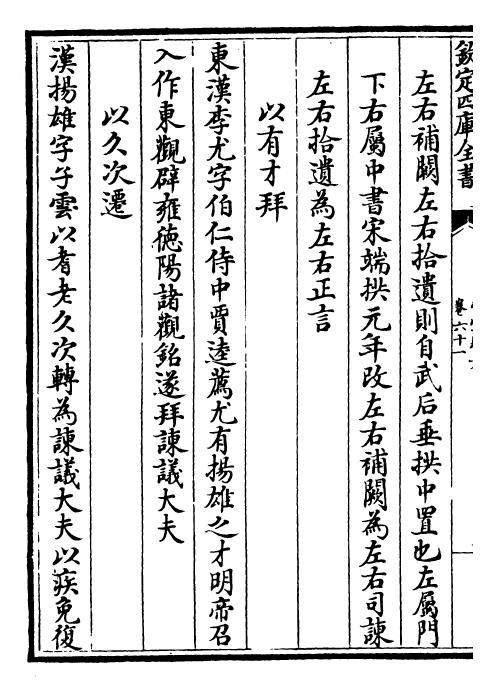 欽定四庫全書
卷六十一
左右補闕左右拾遺則自武后垂拱中置也左屬門
下右屬中書宋端拱元年改左右補闕為左右司諫
左右拾遺為左右正言
以有才拜
東漢李尤字伯仁侍中賈逵薦尤有揚雄之才明帝召
入作東觀辟雍徳陽諸觀銘遂拜諫議大夫
以久次遷
漢揚雄字子雲以耆老久次轉為諫議大夫以疾免復